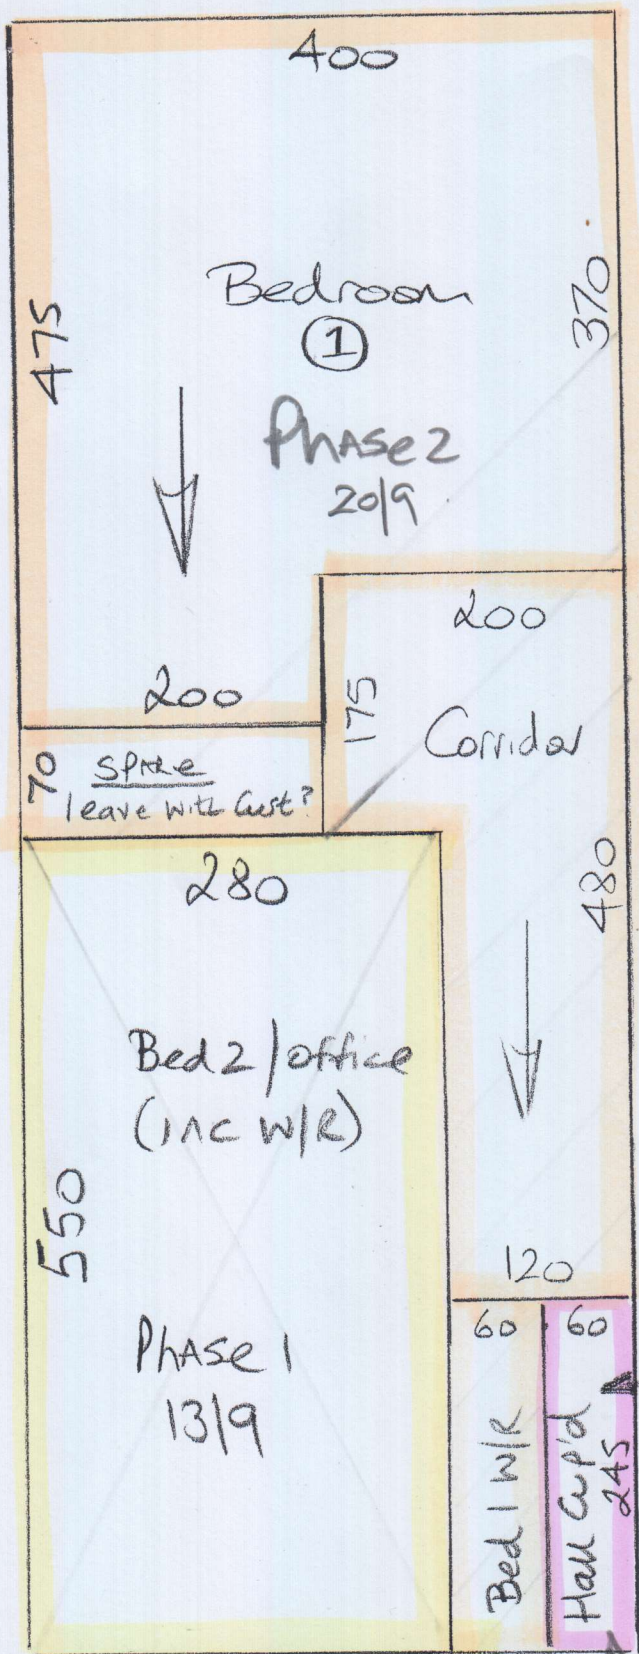 400
Bedroom
1
475
370
Phase 2
20/9
200
200
175
Corridor
70
leave with Cust?
280
480
Bed 2 / office
(inc W/R)
550
120
Phase 1
13/9
60
60
Bed 1 W/R
Hall Cup'd
245